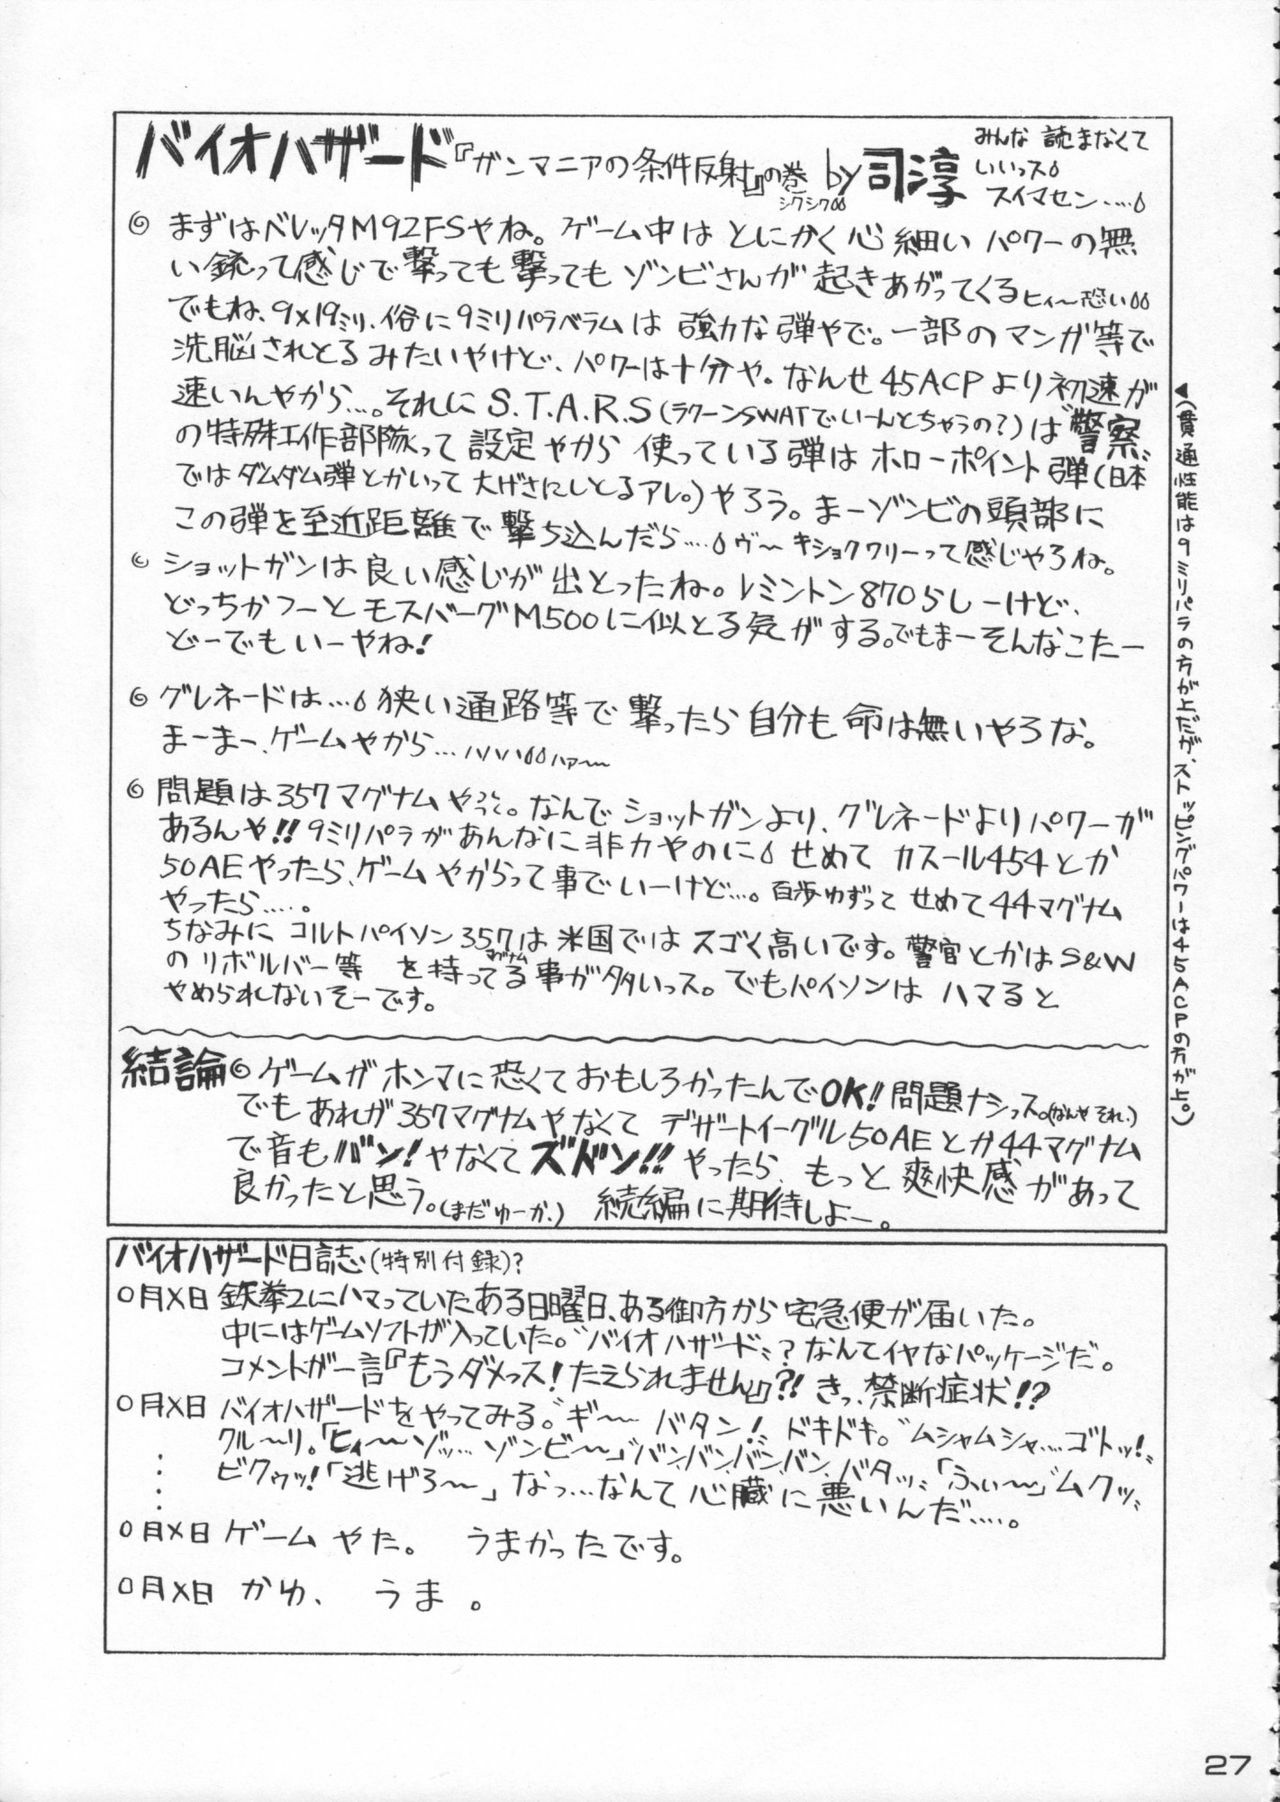 バイオハザード『ガンマニアの条件反射』の巻 by 司淳
シクシク
みんな 読まなくて
いいっス
スイマセン....
まずはベレッタM92FSやね。ゲーム中は とにかく心細い パワーの無
い銃って感じで撃っても撃っても ゾンビさんが 起きあがってくるヒィ〜恐い
でもね、9×19ミリ、俗に9ミリパラベラムは 強力な弾やで。一部のマンガ等で
洗脳されとるみたいやけど、パワーは十分や。なんせ45ACPより初速が
速いんやから...。それにS.T.A.R.S(ラクーンSWATでいーんとちゃうの?)は〝警察〟
の特殊工作部隊って設定やから使っている弾はホローポイント弾(日本
ではダムダム弾とかいって大げさにしとるアレ。)やろう。まーゾンビの頭部に
この弾を至近距離で撃ち込んだら....ヴ〜 キショクワリーって感じやろね。
ショットガンは良い感じが出とったね。レミントン870らしーけど、
どっちかフーとモスバーグM500に似とる気がする。でもまーそんなこたー
どーでもいーやね!
グレネードは...狭い通路等で撃ったら自分も命は無いやろな。
まーまー、ゲームやから...ハハハハァ〜
問題は357マグナムやっと。なんでショットガンより、グレネードよりパワーが
あるんや!!9ミリパラがあんなに非力やのに せめて カスール454とか
50AEやったら、ゲームやからって事でいーけど...。百歩ゆずって せめて44マグナム
やったら.....。
ちなみに コルトパイソン357は米国ではスゴく高いです。警官とかはS&W
マグナム
のリボルバー等 を持ってる事が多いっス。でもパイソンは ハマると
やめられしないそーです。
▲(貫通性能は9ミリパラの方が上だが、ストッピングパワーは45ACPの方が上。)
結論 ゲームがホンマに恐くておもしろかったんでOK!問題ナシっス。(なんや それ。)
でもあれが357マグナムやなくて デザートイーグル50AEとか44マグナム
で音もバン!やなくてズドン!!やったら、もっと爽快感があって
良かったと思う。(まだゆーか、) 続編に期待しよー。
バイオハザード日誌(特別付録)?
0月X日 鉄拳2にハマっていたある日曜日、ある御方から宅急便が届いた。
中にはゲームソフトが入っていた。〝バイオハザード〟?なんてイヤなパッケージだ。
コメントが一言『もうダメっス!たえられません』?!きっ、禁断症状!?
0月X日 バイオハザードをやってみる。〝ギ〜 バタン!〟ドキドキ。〝ムシャムシャ....ゴトッ!〟
クル〜リ。「ヒィ〜ゾッ...ゾンビ〜」バンバンバンバン、バタッ〟「ふぃ〜」ムクッ〟
ビクゥッ!「逃げろ〜」なっ...なんて心臓に悪いんだ.....。
0月X日 ゲーム やた。 うまかったです。
0月X日 かゆ、 うま 。
27